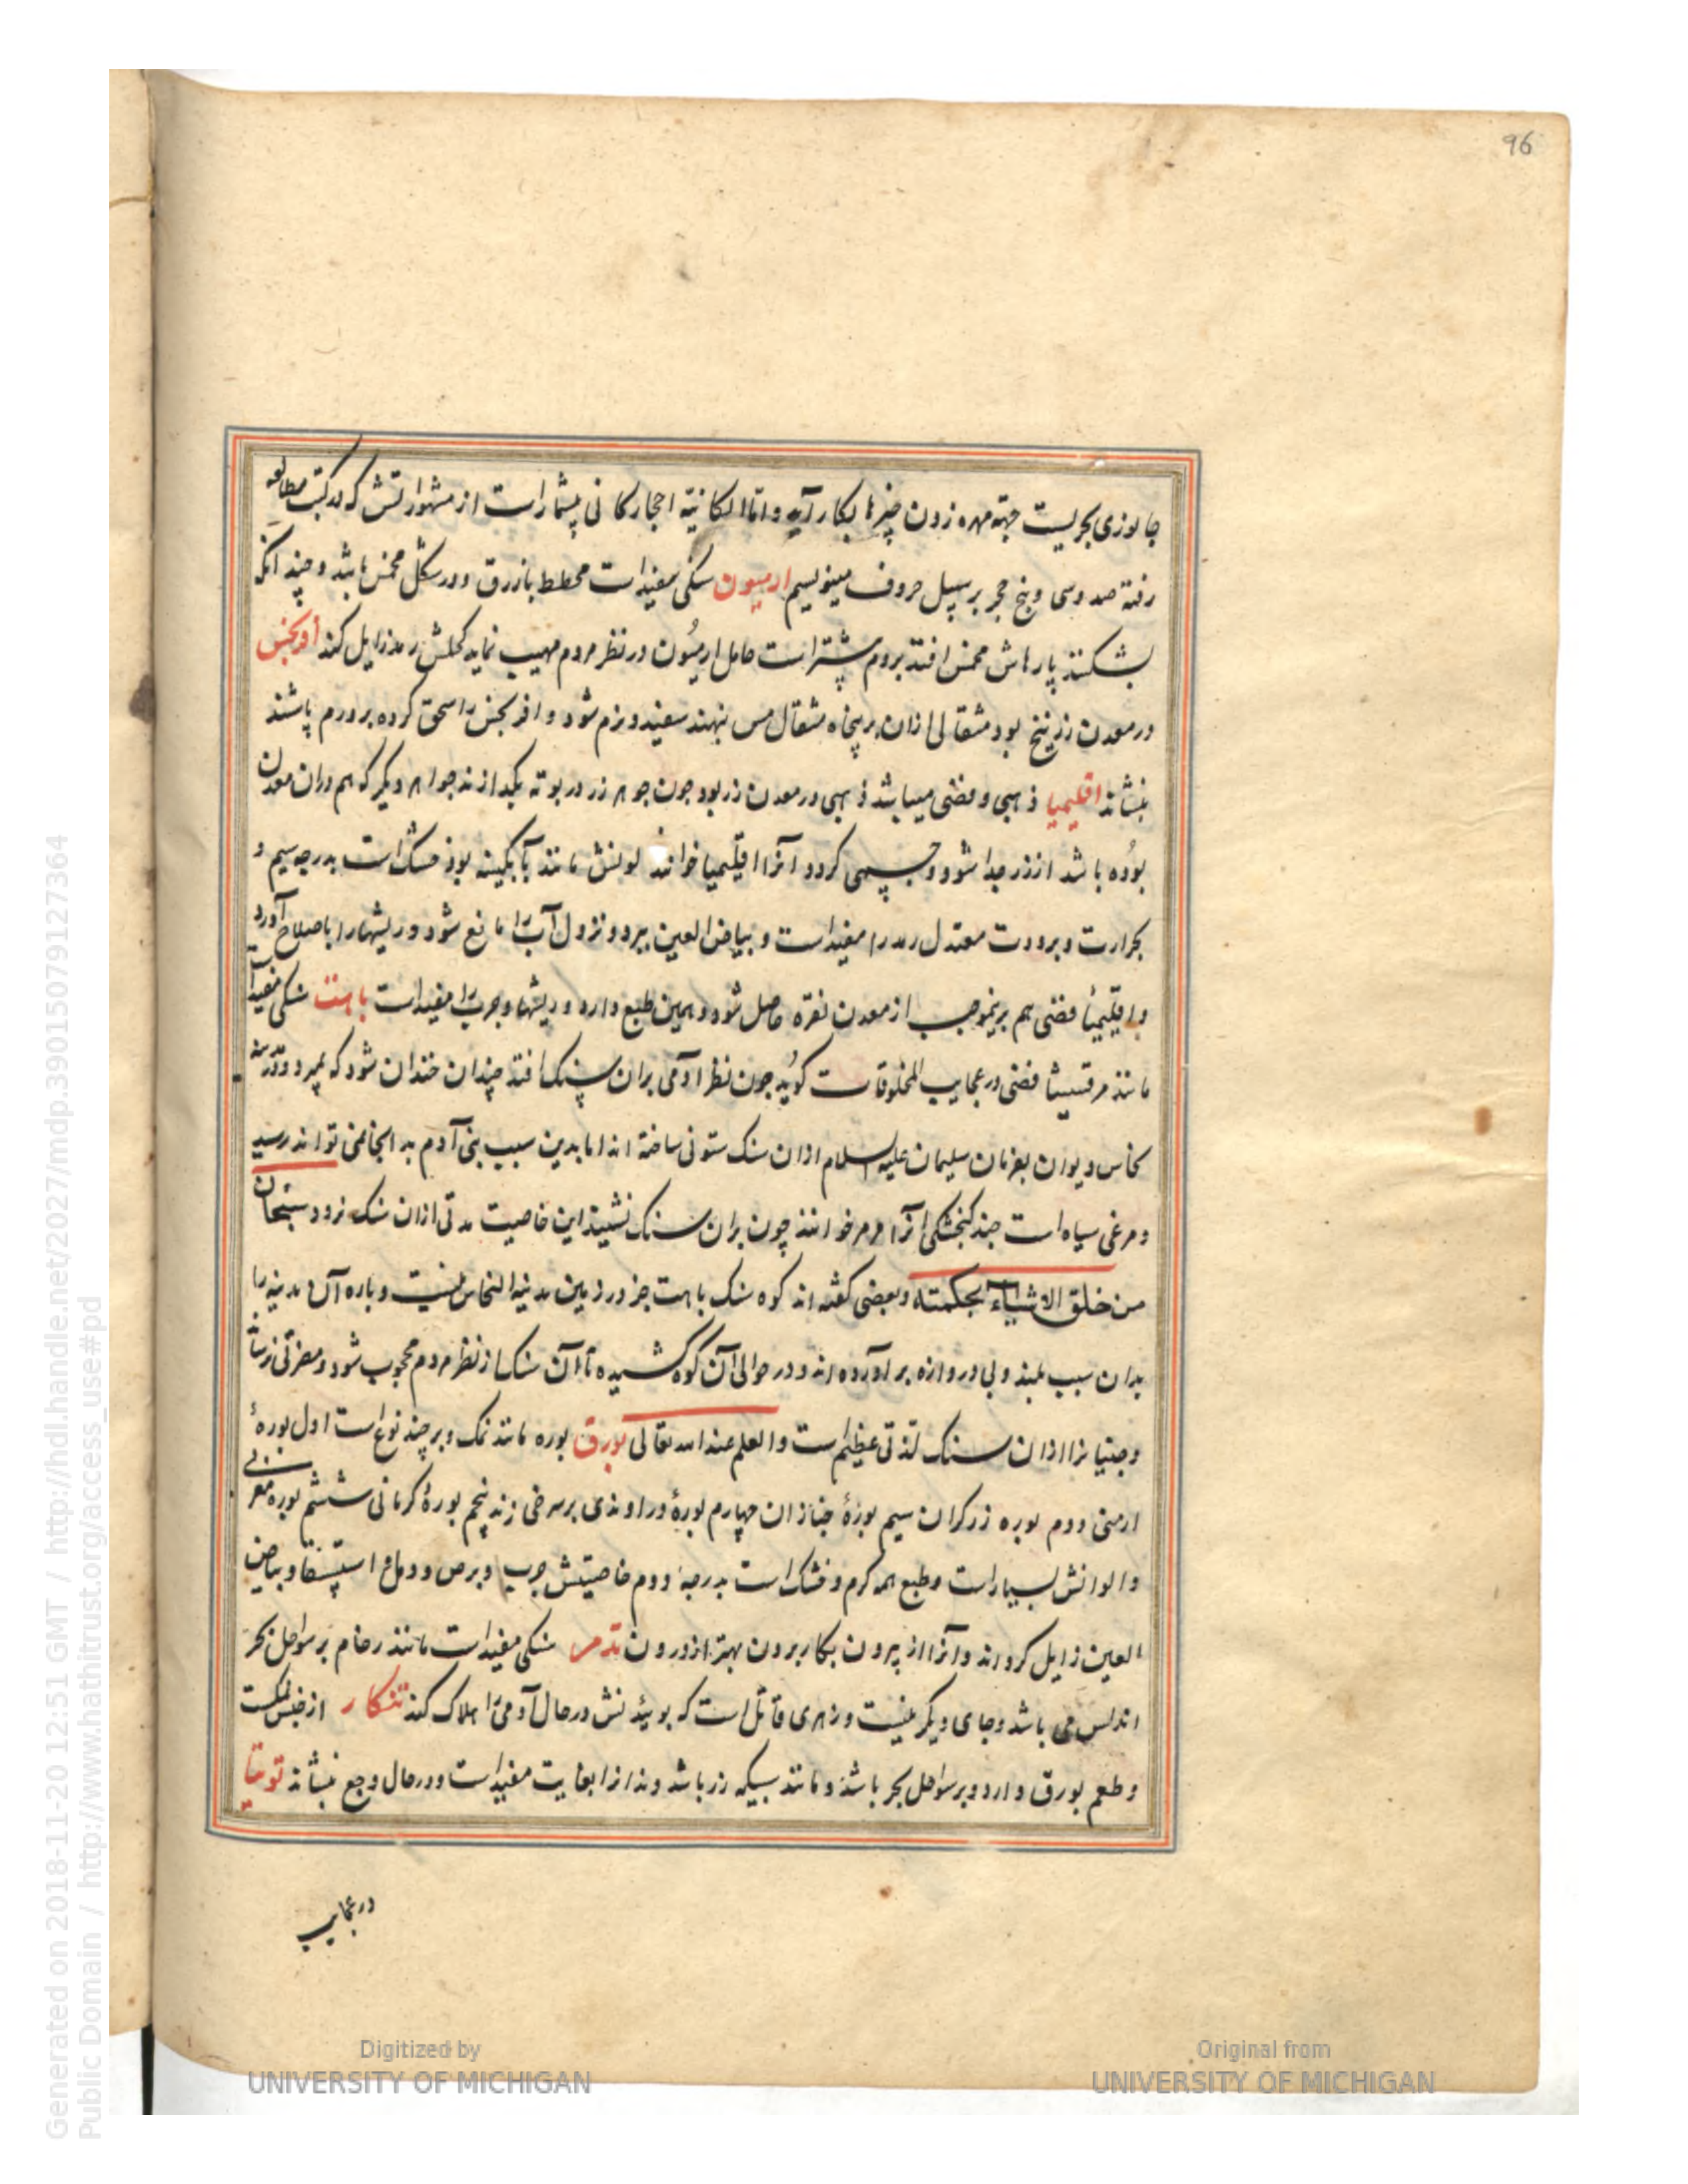 96
جانوری بحریست جهته مهره زدن چیزها بکار آید و اما الکانیّة احجار کانی بیشمار است از مشهوراتش که در کتب مطالعه
رفته صد و سی و پنج حجر بر سبیل حروف مینویسیم ارمیون سنکی سفید است مخطط بازرق و در شکل مخمس باشد و چندانکه
بشکنند پارهاش مخمس افتد بروم بیشتر است حامل ارمیون در نظر مردم مهیب نماید کحلش رمد زایل کند
در معدن زرنیخ بود مثقالی ازان بر پنجاه مثقال مس نهند سفید و نرم شود و را سحق کرده بر ورم پاشند
بنشاند اقلیمیا ذهبی و فضی میباشد ذهبی در معدن زر بود چون جوهر زر در بوته بکدازند جواهر دیکر که هم دران معدن
بوده باشد از زر جدا شود و جسمی کردد آنرا اقلیمیا خوانند لونش مانند آبکینه بود خشک است بدرجه سیم و
بحرارت و برودت معتدل رمد را مفید است و بیاض العین ببرد و نزول آب را مانع شود و ریشها را باصلاح آورد
و اقلیمیأ فضی هم برینموجب از معدن نقره حاصل شود و همین طبع دارد و ریشها و جرب را مفید است باهت سنکی سفید است
مانند مرقشیشا فضی در عجایب المخلوقات کوید چون نظر آدمی بران سنک افتد چندان خندان شود که بمیرد و در مدینه
نحاس دیوان بفرمان سلیمان علیه السلام ازان سنک ستونی ساخته اند اما بدین سبب بنی آدم بدانجا نمی تواند رسید
و مرغی سیاه است چند کنجشکی آنرا خوانند چون بران سنک نشیند این خاصیت مدتی ازان سنک نرود سبحان
من خلق الاشیاء بحکمته و بعضی کفته اند کوه سنک باهت جز در زمین مدینة النحاس نیست و باره آن مدینه را
بدان سبب بلند و بی دروازه برآورده اند و در حوالی آن کوه کشیده تا آن سنک از نظر مردم محجوب شود و مضرتی نرساند
و جنیانرا ازان سنک لذتی عظیم است و العلم عند الله تعالی بورق بوره مانند نمک و بر چند نوع است اول بورۀ
ارمنی دوم بوره زرکران سیم بورۀ خبازان چهارم بورۀ دراوندی بر سرخی زند پنجم بورۀ کرمانی ششم بوره مغربی
و الوانش بسیار است و طبع همه کرم و خشک است بدرجۀ دوم خاصیتش جرب و برص و استسقا و بیاض
العین زایل کرداند و آنرا از بیرون بکار بردن بهتر از درون تدمر سنکی سفید است مانند رخام بر سواحل بحر
اندلس می باشد و جای دیکر نیست و زهری قاتل است که بوئیدنش در حال آدمی را هلاک کند تنکار از جنس نمکست
و طعم بورق دارد و بر سواحل بحر باشد و مانند سبیکه زر باشد دندانرا بغایت مفید است و در حال وجع بنشاند توتیا
در عجایب
Digitized by
UNIVERSITY OF MICHIGAN
Original from
UNIVERSITY OF MICHIGAN
Generated on 2018-11-20 12:51 GMT / http://hdl.handle.net/2027/mdp.39015079127364
Public Domain / http://www.hathitrust.org/access_use#pd